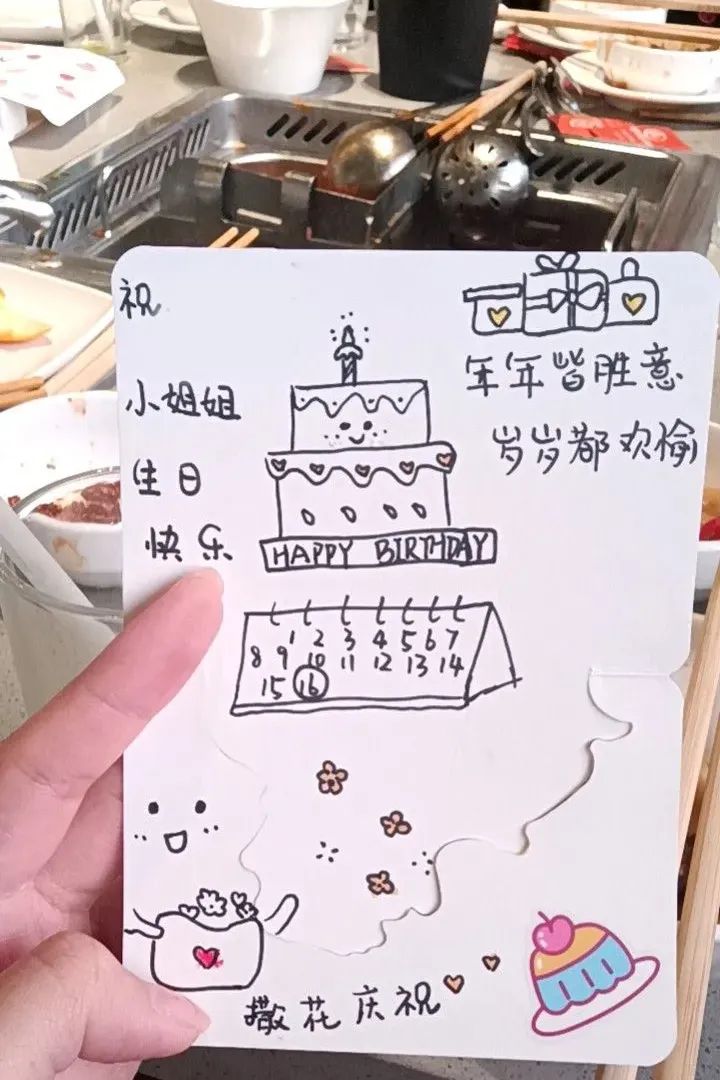 祝
小姐姐
生日
快乐
年年皆胜意
岁岁都欢愉
HAPPY BIRTHDAY
1 2 3 4 5 6 7
8 9 10 11 12 13 14
15 16
撒花庆祝